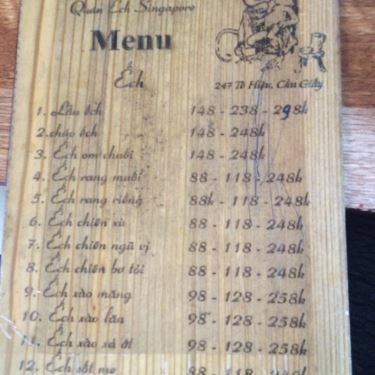 Quán Ếch Singapore
Menu
Ếch
247 Tô Hiệu, Cầu Giấy
1. Lẩu ếch 148 - 238 - 298k
2. cháo ếch 148 - 248k
3. Ếch om chuối 148 - 248k
4. Ếch rang muối 88 - 118 - 248k
5. Ếch rang riềng 88k - 118 - 248k
6. Ếch chiên xù 88 - 118 - 248k
7. Ếch chiên ngũ vị 88 - 118 - 248k
8. Ếch chiên bơ tỏi 88 - 118 - 248k
9. Ếch xào măng 98 - 128 - 258k
10. Ếch xào lăn 98 - 128 - 258k
11. Ếch xào xả ớt 98 - 128 - 258k
12. Ếch sốt me 88 - 118 - 248k